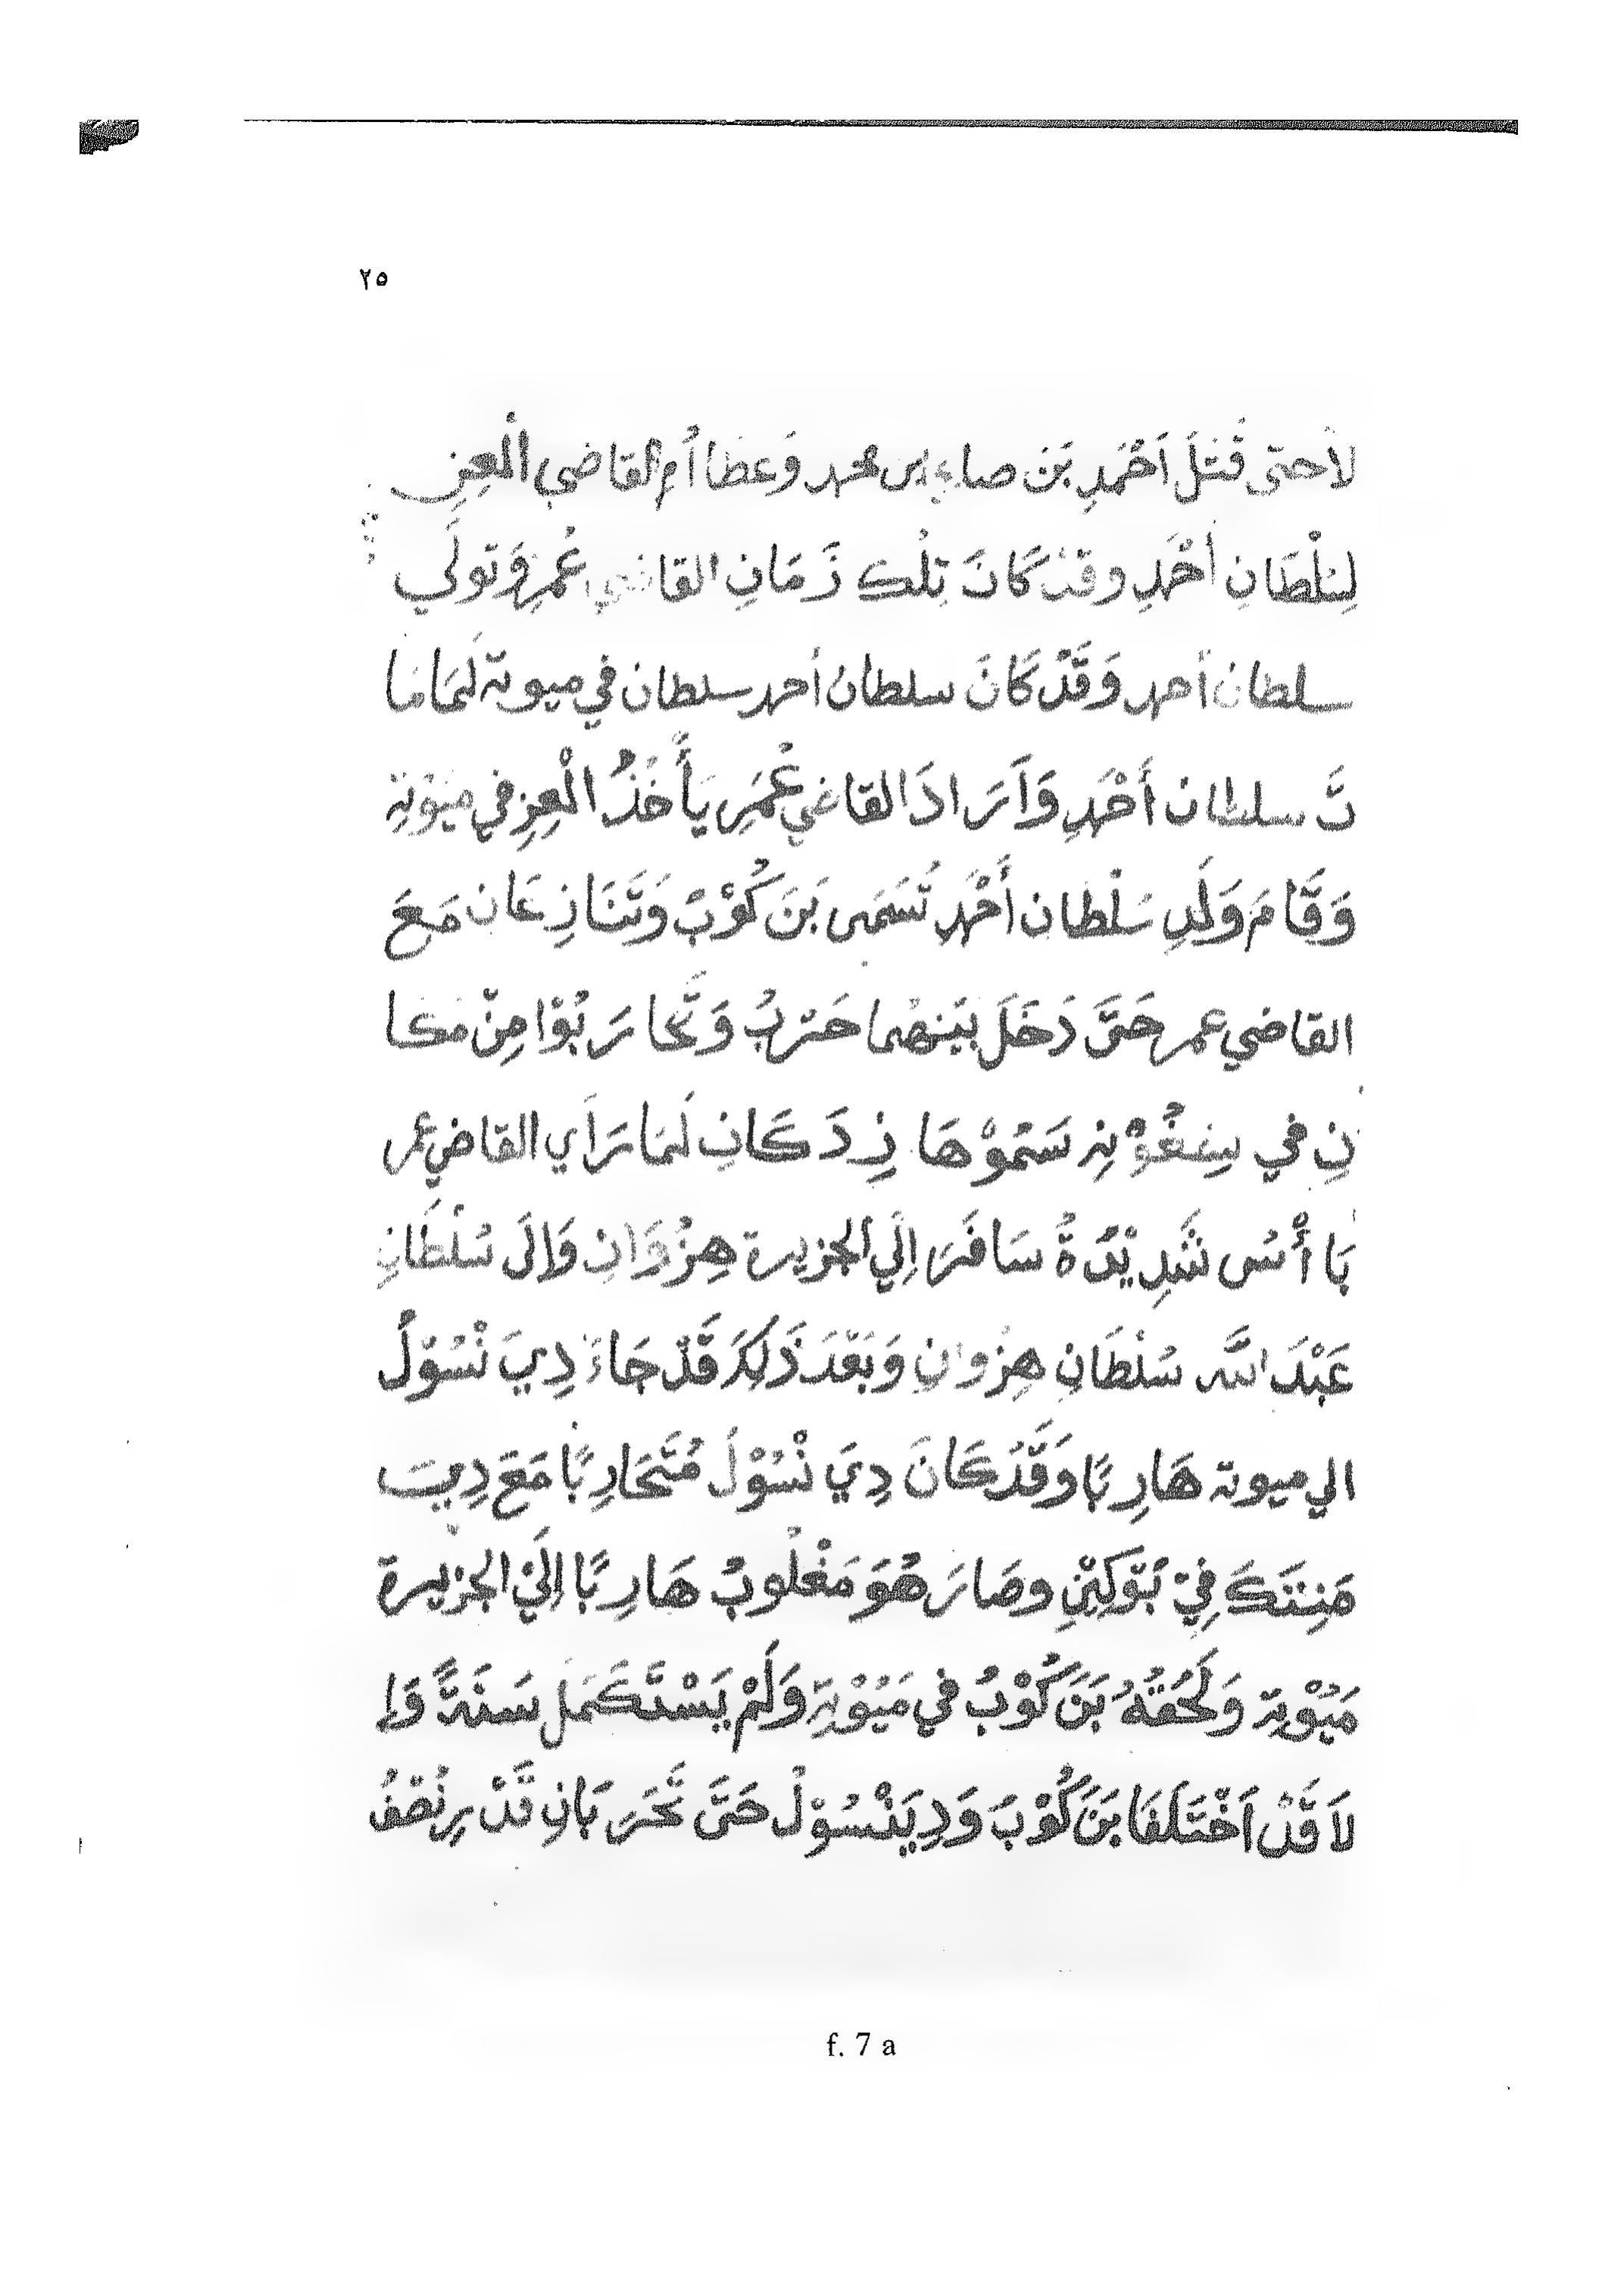 ٢٥
لاحتى قُتلَ اَحْمَدِ بَن صاع بن محمد وَعطا أُم القاضي الْعِزِ
لِسُلْطَانِ أَحْمَدِ وقدْ كَانَ تِلْك زَمَانِ القاضي عُمرِ وَتولَي
سلطان أحمد وَقَدْ كَانَ سلطان أحمد سلطان في ميوتة لَمَامَا
تَّ سلطان أَحْمَدِ وَاَرَادَ القاضي عُمَرِ يَأَخَذُ الْعِزِ في مَيُوْتِةِ
وَقَامَ وَلَدِ سَلْطان أَحْمَدِ تُسَمَى بَنَ كُوْبُ وَتَنَازِعَان مَعَ
القاضي عمر حَتَّى دَخَلَ بَيْنهُما حَرْبُ وَتَحارَبُوْا مِنْ مَكا
نِ في سِنغُوْنِ سَمُوْهَا ذِدَكَانِ لَمَا رَأَي القاضي عمر
بَاأْسُ شَدِيْدَةُ سَافَرَ اِلَي الجزيرة هِزُوَانِ وَاِلَى سُلْطَانِ
عَبْدَ اللَّه سُلْطَانِ هِزوانِ وَبَعْدَ ذَلِكَ قَدْ جَاءَ دِيَ نْسُوْلُ
الي ميوتة هَارِبًا وَقَدْ كَانَ دِيَ نْسُوْلُ مُتَحَارِبًا مَعَ دِيَ
مَنِتَكَ فِيْ بُوَكِيْنِ وصَارَ هُوَ مَغْلُوبُ هَارِبًا اِلَيْ الجزيرة
مَيُوْتِة وَلَحُقهُ بَنَ كُوْبُ في مَيُوْتِة وَلَمْ يَسْتَكَمَلْ سَنَةً وَاِ
لَا قَدْ اَخْتَلَفَا بَنَ كُوْبَ وَدِيَنْسُوْلُ حَتَّى تَحَرَبَانِ قَدْرِ نُصْفُ
f. 7 a